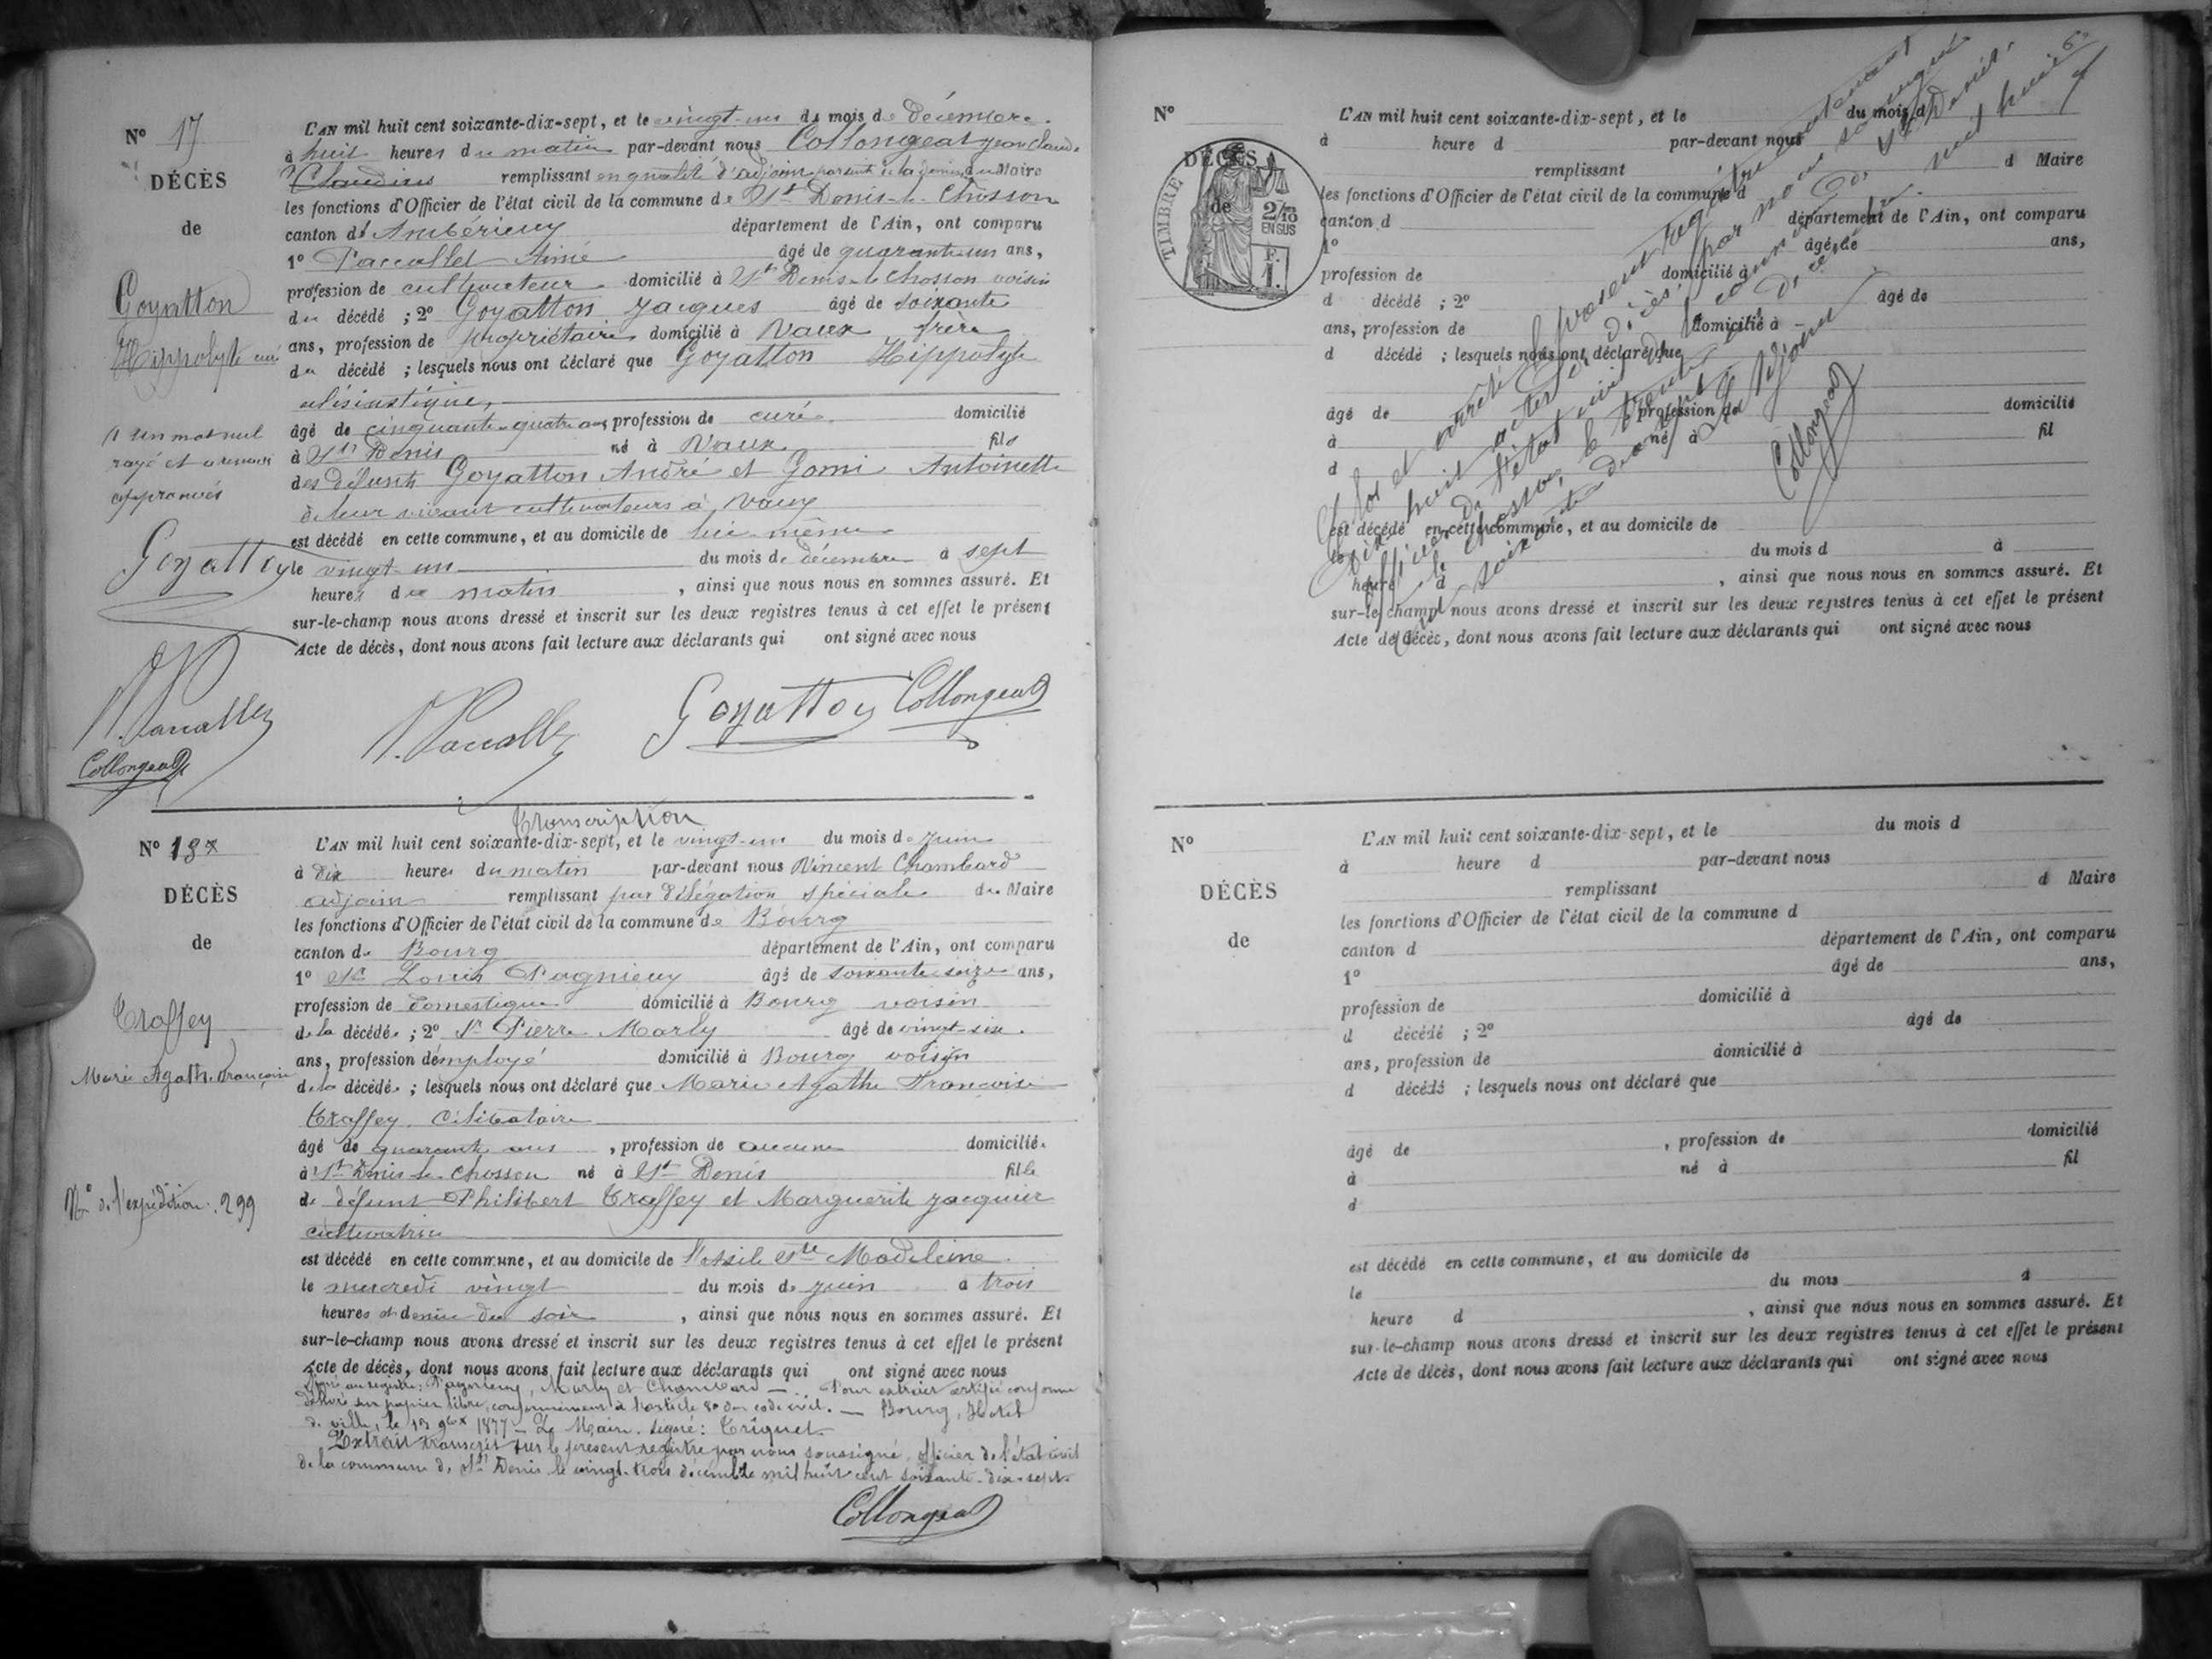 N° 17
DÉCÈS
de
Goyatton
Hippolyte curé
1 un mot nul
rayé et
approuvés
Goyatton
Collongeat
L'AN mil huit cent soixante-dix-sept, et le vingt-un du mois de Décembre
à huit heures du matin par-devant nous Collongeat Jean Claude
Claudius remplissant en qualité d'adjoint par suite de la démission du Maire
les fonctions d'Officier de l'état civil de la commune de St Denis-le-Chosson
canton d'Ambérieuy département de l'Ain, ont comparu
1° Paccallet Aimé âgé de quarante un ans,
profession de cultivateur domicilié à St Denis-le-Chosson voisin
du décédé ; 2° Goyatton Jacques âgé de soixante
ans, profession de propriétaire domicilié à Vaux frère
du décédé ; lesquels nous ont déclaré que Goyatton Hippolyte
âgé de cinquante-quatre ans profession de curé domicilié
à St Denis né à Vaux fils
des défunts Goyatton André et Gomi Antoinette
de leur vivant cultivateurs à Vaux
est décédé en cette commune, et au domicile de lui-même
le vingt-un du mois de décembre à sept
heures du matin , ainsi que nous nous en sommes assuré. Et
sur-le-champ nous avons dressé et inscrit sur les deux registres tenus à cet effet le présent
Acte de décès, dont nous avons fait lecture aux déclarants qui ont signé avec nous
Goyatton Collongeat
Transcription
N° 18
DÉCÈS
de
Traffey
Marie Agathe Françoise
N° de l'expédition 299
L'AN mil huit cent soixante-dix-sept, et le vingt-un du mois de Juin
à dix heures du matin par-devant nous Vincent Chambard
adjoint remplissant par délégation spéciale du Maire
les fonctions d'Officier de l'état civil de la commune de Bourg
canton de Bourg département de l'Ain, ont comparu
1° Sr Louis Pagnieuy âgé de soixante seize ans,
profession de domestique domicilié à Bourg voisin
de la décédée ; 2° Sr Pierre Marly âgé de vingt-six
ans, profession d'employé domicilié à Bourg voisin
de la décédée ; lesquels nous ont déclaré que Marie Agathe Françoise
Traffey célibataire
âgé de quarante ans , profession de aucune domiciliée
à St Denis-le-Chosson né à St Denis fille
de défunt Philibert Traffey et Marguerite Jacquier
cultivatrice
est décédé en cette commune, et au domicile de l'asile Ste Madeleine
le mercredi vingt du mois de juin à trois
heures et demie du soir , ainsi que nous nous en sommes assuré. Et
sur-le-champ nous avons dressé et inscrit sur les deux registres tenus à cet effet le présent
Acte de décès, dont nous avons fait lecture aux déclarants qui ont signé avec nous
Signé au registre: Pagnieuy, Marly et Chambard — Pour extrait certifié conforme
délivré sur papier libre, conformément à l'article 80 du code civil. — Bourg, Hôtel
de ville, le 13 9bre 1877 — Le Maire. Signé: Triquet.
Extrait transcrit sur le présent registre par nous soussigné, officier de l'état civil
de la commune de St Denis le vingt-trois décembre mil huit cent soixante-dix-sept.
Collongeat
N°
DÉCÈS
de
TIMBRE
2/10
EN SUS
F.
1.
L'AN mil huit cent soixante-dix-sept, et le du mois d
à heure d par-devant nous
remplissant d Maire
les fonctions d'Officier de l'état civil de la commune d
canton d département de l'Ain, ont comparu
1° âgé de ans,
profession de domicilié à
d décédé ; 2° âgé de
ans, profession de domicilié à
d décédé ; lesquels nous ont déclaré que
âgé de profession de domicilié
à né à fil
d
est décédé en cette commune, et au domicile de
le du mois d à
heure d , ainsi que nous nous en sommes assuré. Et
sur-le-champ nous avons dressé et inscrit sur les deux registres tenus à cet effet le présent
Acte de décès, dont nous avons fait lecture aux déclarants qui ont signé avec nous
Clos et arrêté le présent registre contenant
dix huit actes de décès, par nous soussigné
officier de l'état civil de la commune de St Denis
le Chosson, le trente un décembre mil huit
cent soixante dix sept
L'Adjoint
Collongeat
N°
DÉCÈS
de
L'AN mil huit cent soixante-dix-sept, et le du mois d
à heure d par-devant nous
remplissant d Maire
les fonctions d'Officier de l'état civil de la commune d
canton d département de l'Ain, ont comparu
1° âgé de ans,
profession de domicilié à
d décédé ; 2° âgé de
ans, profession de domicilié à
d décédé ; lesquels nous ont déclaré que
âgé de , profession de domicilié
à né à fil
d
est décédé en cette commune, et au domicile de
le du mois à
heure d , ainsi que nous nous en sommes assuré. Et
sur-le-champ nous avons dressé et inscrit sur les deux registres tenus à cet effet le présent
Acte de décès, dont nous avons fait lecture aux déclarants qui ont signé avec nous